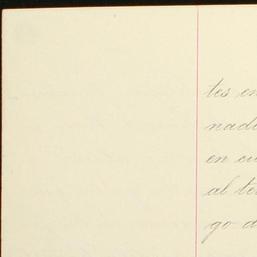 tes en
nad
en cu
al te
go d